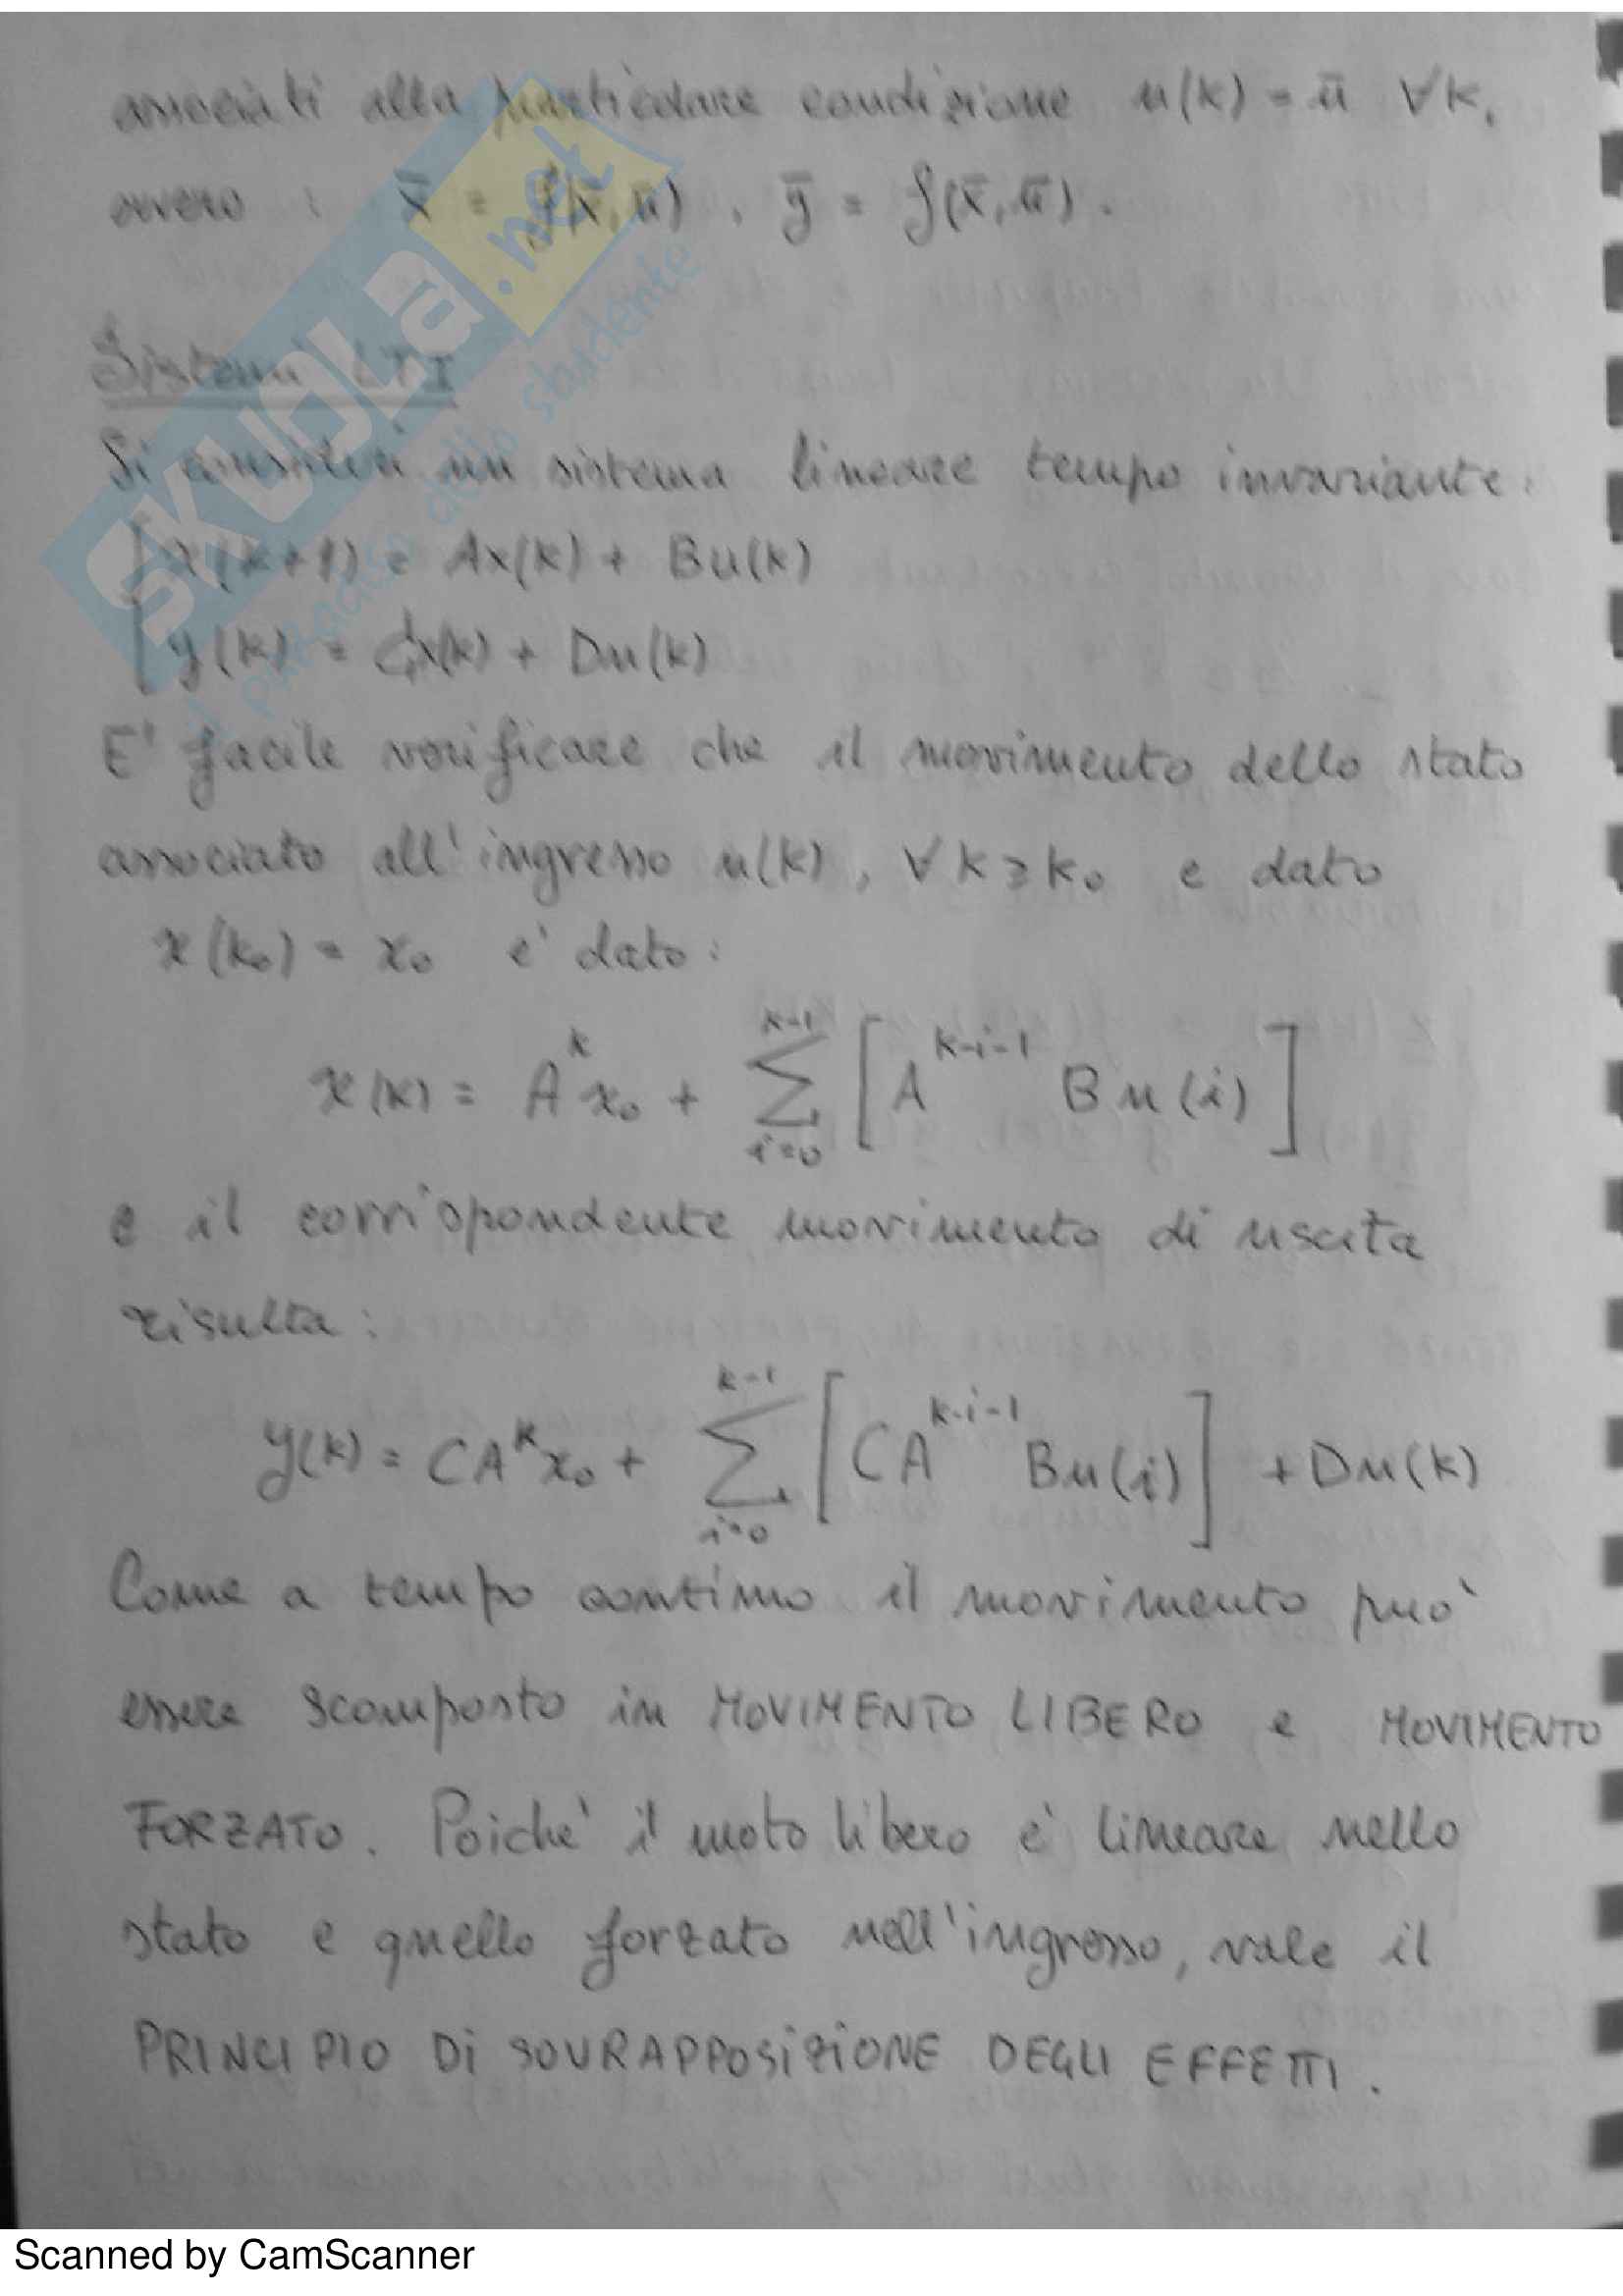 associati alla particolare condizione u(k) = ū ∀k,
ovvero : x̄ = f(x̄, ū) , ȳ = g(x̄, ū) .
Sistemi LTI
Si consideri un sistema lineare tempo invariante:
x(k+1) = Ax(k) + Bu(k)
y(k) = Cx(k) + Du(k)
E' facile verificare che il movimento dello stato
associato all'ingresso u(k), ∀ k ≥ k₀ e dato
x(k₀) = x₀ e' dato:
x(k) = A^k x₀ + ∑_{i=0}^{k-1} [A^{k-i-1} Bu(i)]
e il corrispondente movimento di uscita
risulta:
y(k) = CA^k x₀ + ∑_{i=0}^{k-1} [CA^{k-i-1} Bu(i)] + Du(k)
Come a tempo continuo il movimento può
essere scomposto in MOVIMENTO LIBERO e MOVIMENTO
FORZATO. Poiche' il moto libero e' lineare nello
stato e quello forzato nell'ingresso, vale il
PRINCIPIO Di SOVRAPPOSIZIONE DEGLI EFFETTI.
SKUOLA.net
il paradiso dello studente
Scanned by CamScanner